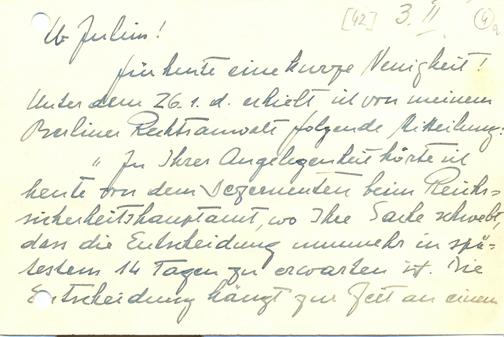 [42] 3. II. 4a
Lb Julius!
für heute eine kurze Neuigkeit!
Unter dem 26.1. d. erhielt ich von meinem
Berliner Rechtsanwalt folgende Mitteilung:
"In Ihrer Angelegenheit hörte ich
heute von dem Dezernenten beim Reichs=
sicherheitshauptamt, wo Ihre Sache schwebt,
dass die Entscheidung nunmehr in spä=
testens 14 Tagen zu erwarten ist. Die
Entscheidung hängt zur Zeit an einem